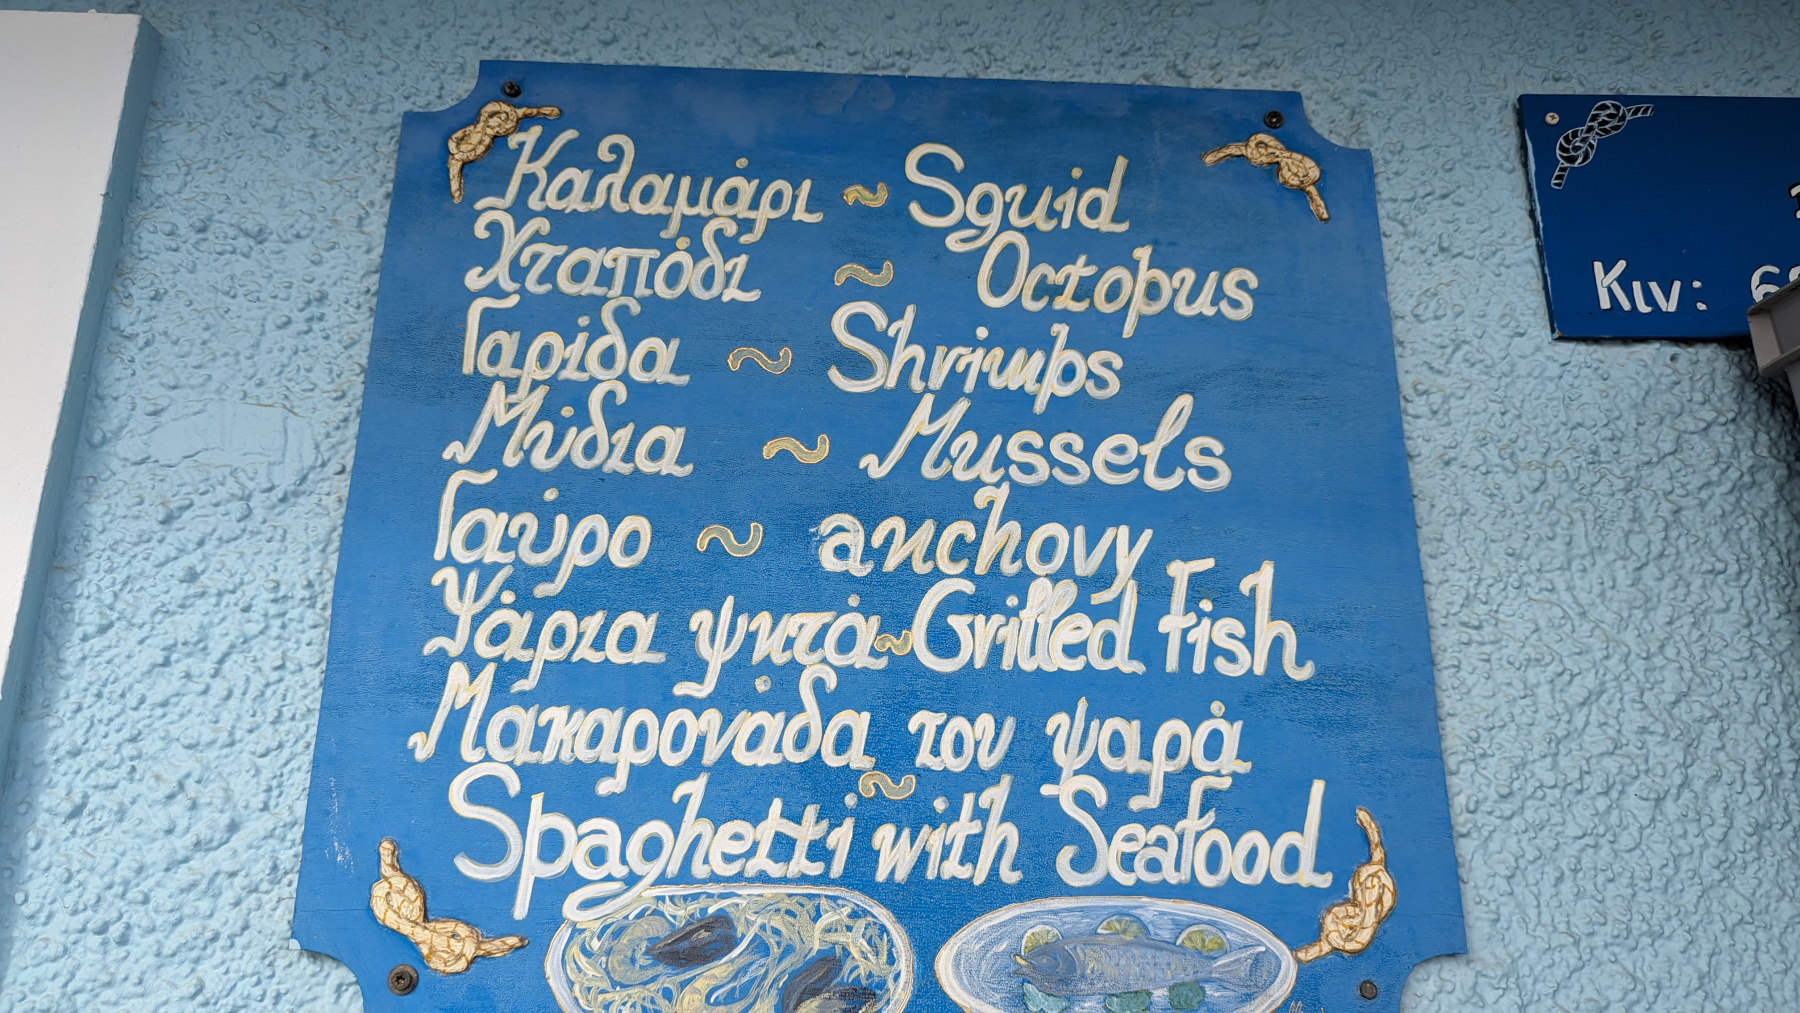 Καλαμάρι ~ Sguid
Χταπόδι ~ Octopus
Γαρίδα ~ Shrimps
Μύδια ~ Mussels
Γαύρο ~ anchovy
Ψάρια ψητά ~ Grilled Fish
Μακαρονάδα του ψαρά
~
Spaghetti with Seafood
Κιν: